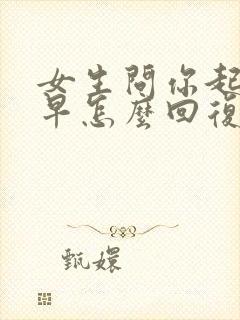 女生問你起
早怎麼回復
甄嬛